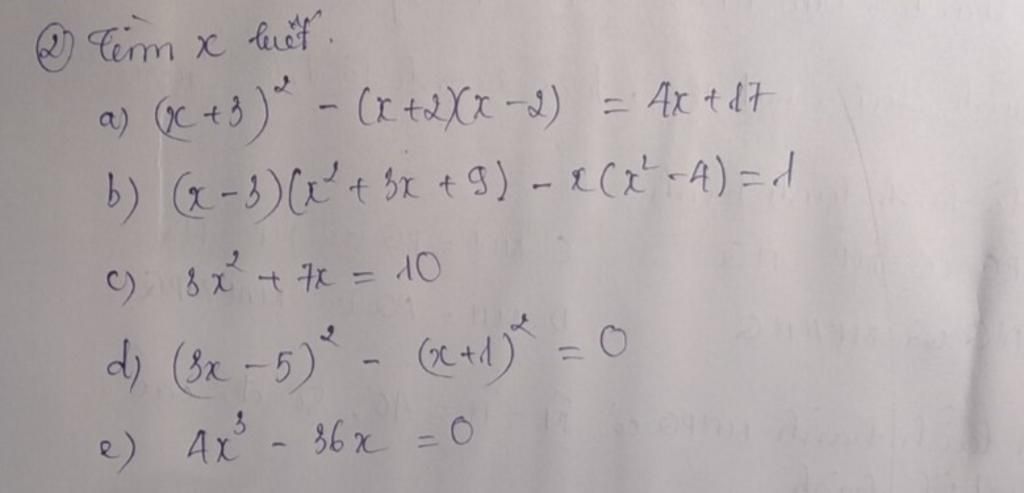 ② Tìm x biết.
a) (x+3)² - (x+2)(x-2) = 4x+17
b) (x-3)(x²+3x+9) - x(x²-4) = 1
c) 3x² + 7x = 10
d) (3x-5)² - (x+1)² = 0
e) 4x³ - 36x = 0